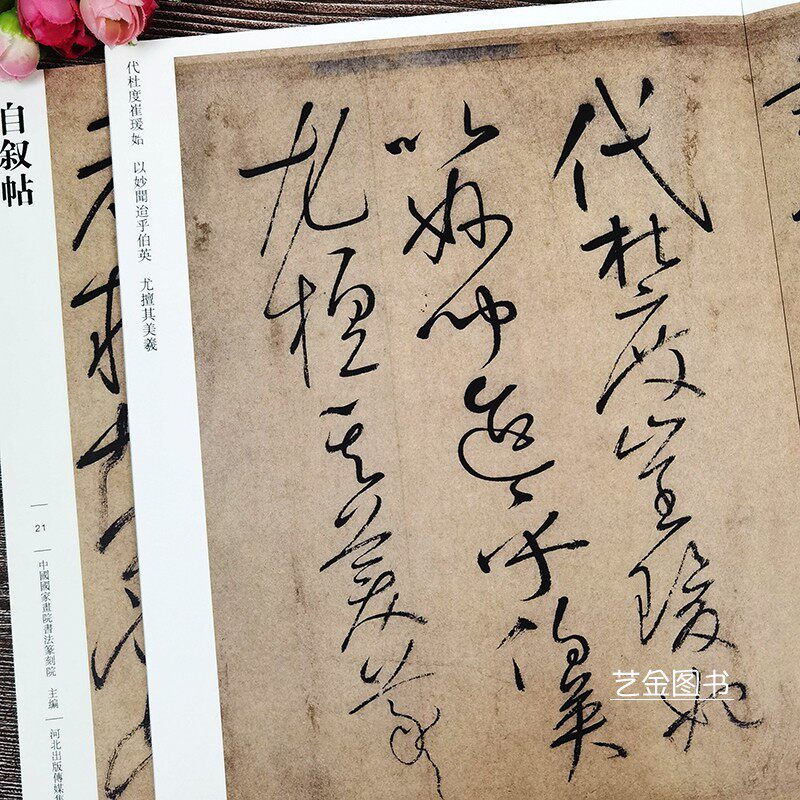 代杜度崔瑗始
以妙聞迨乎伯英
尤擅其美羲
代杜度崔瑗始　以妙聞迨乎伯英　尤擅其美羲
自叙帖
21
中國國家畫院書法篆刻院　主编
河北出版傳媒集
艺金图书